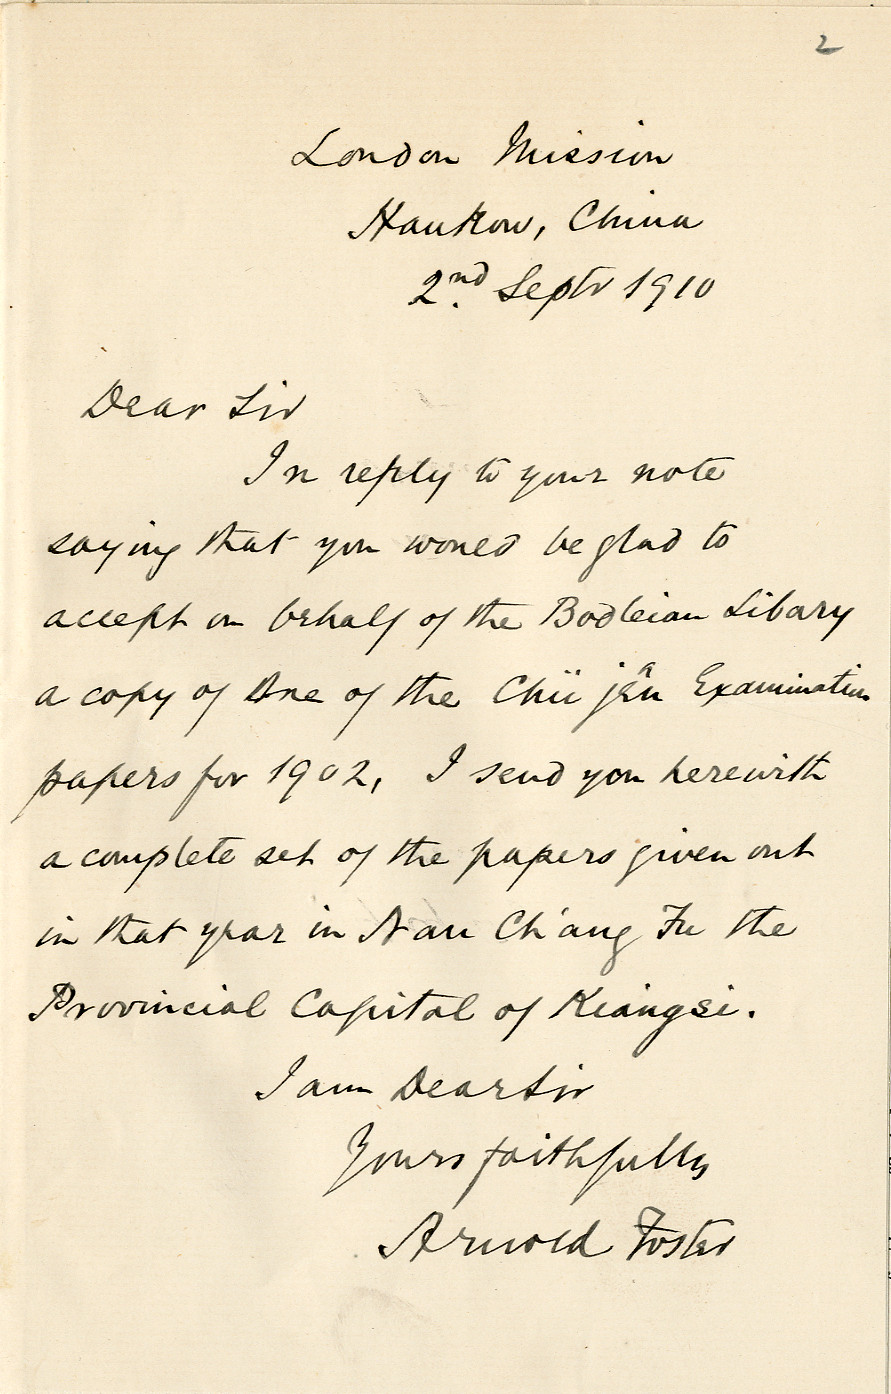 2
London Mission
Hankow, China
2nd. Septr 1910
Dear Sir
In reply to your note
saying that you would be glad to
accept on behalf of the Bodleian Libary
a copy of one of the Chü jên Examination
papers for 1902, I send you herewith
a complete set of the papers given out
in that year in Nan Ch'ang Fu the
Provincial Capital of Kiangsi.
I am Dear Sir
Yours faithfully
Arnold Foster